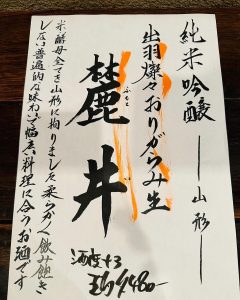 純米吟醸 ― 山形 ―
出羽燦々おりがらみ生
麓井
ふもと い
酒度+3
米酵母全てを山形に拘りました柔らかく飲み飽き
しない普遍的な味わいで幅広い料理に合うお酒です